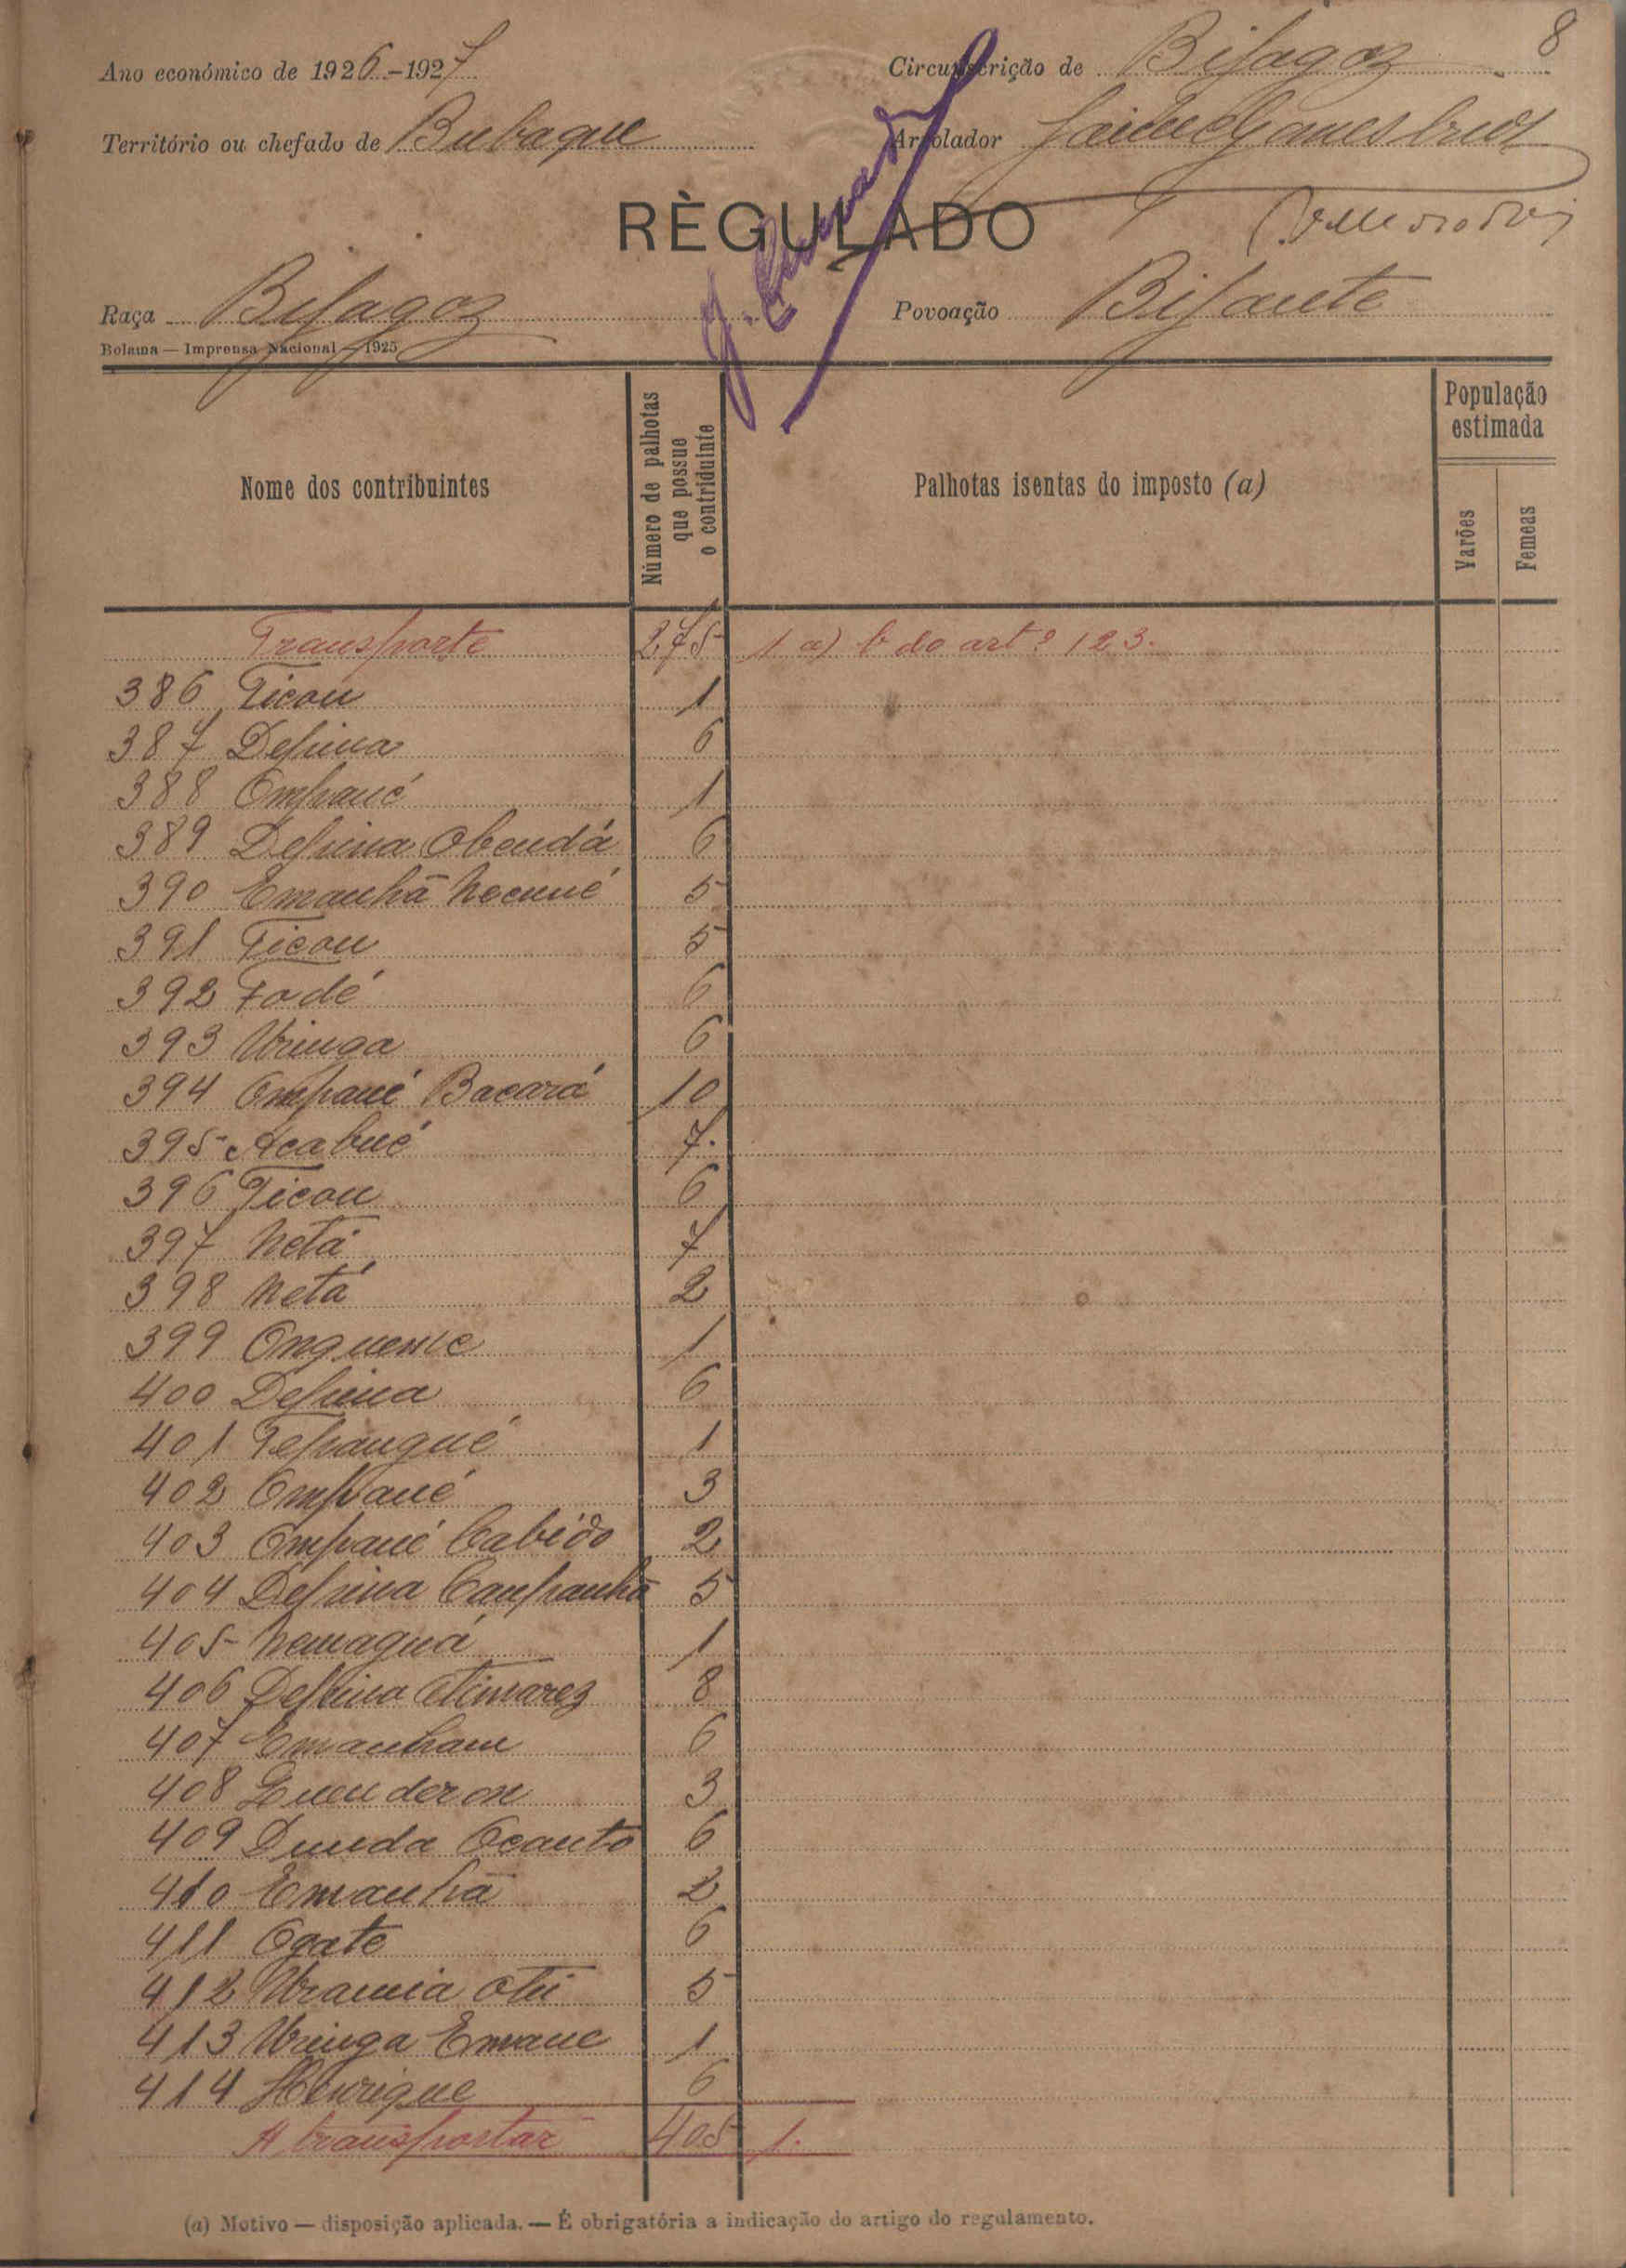 8
Ano económico de 1926-1927 Circunscrição de Bijagoz
Território ou chefado de Bubaque Arrolador
RÈGULADO
Raça Bijagoz Povoação Bijante
Bolama — Imprensa Nacional — 1925
Nome dos contribuintes
Número de palhotas que possue o contriduinte
Palhotas isentas do imposto (a)
População estimada
Varões
Femeas
Transporte 275 1 a) b do artº 123.
386 Ticou 1
387 Depina 6
388 Ompané 1
389 Depina Obendá 6
390 Emanhã Necuné 5
391 Ticou 5
392 Fodé 6
393 Uringa 6
394 Ompané Bacará 10
395 Acabué 7.
396 Ticou 6
397 Netá 7
398 Netá 2
399 Onquenne 1
400 Depina 6
401 Tepangué 1
402 Ompané 3
403 Ompané Cabido 2
404 Depina Canpanhã 5
405 Nemaguá 1
406 Depina 8
407 Emanham 6
408 3
409 Dunda Ocanto 6
410 Emanhã 2
411 Ogato 6
412 Urania Oti 5
413 Uringa Emane 1
414 Henrique 6
A transportar 405 1.
(a) Motivo — disposição aplicada. — É obrigatória a indicação do artigo do regulamento.